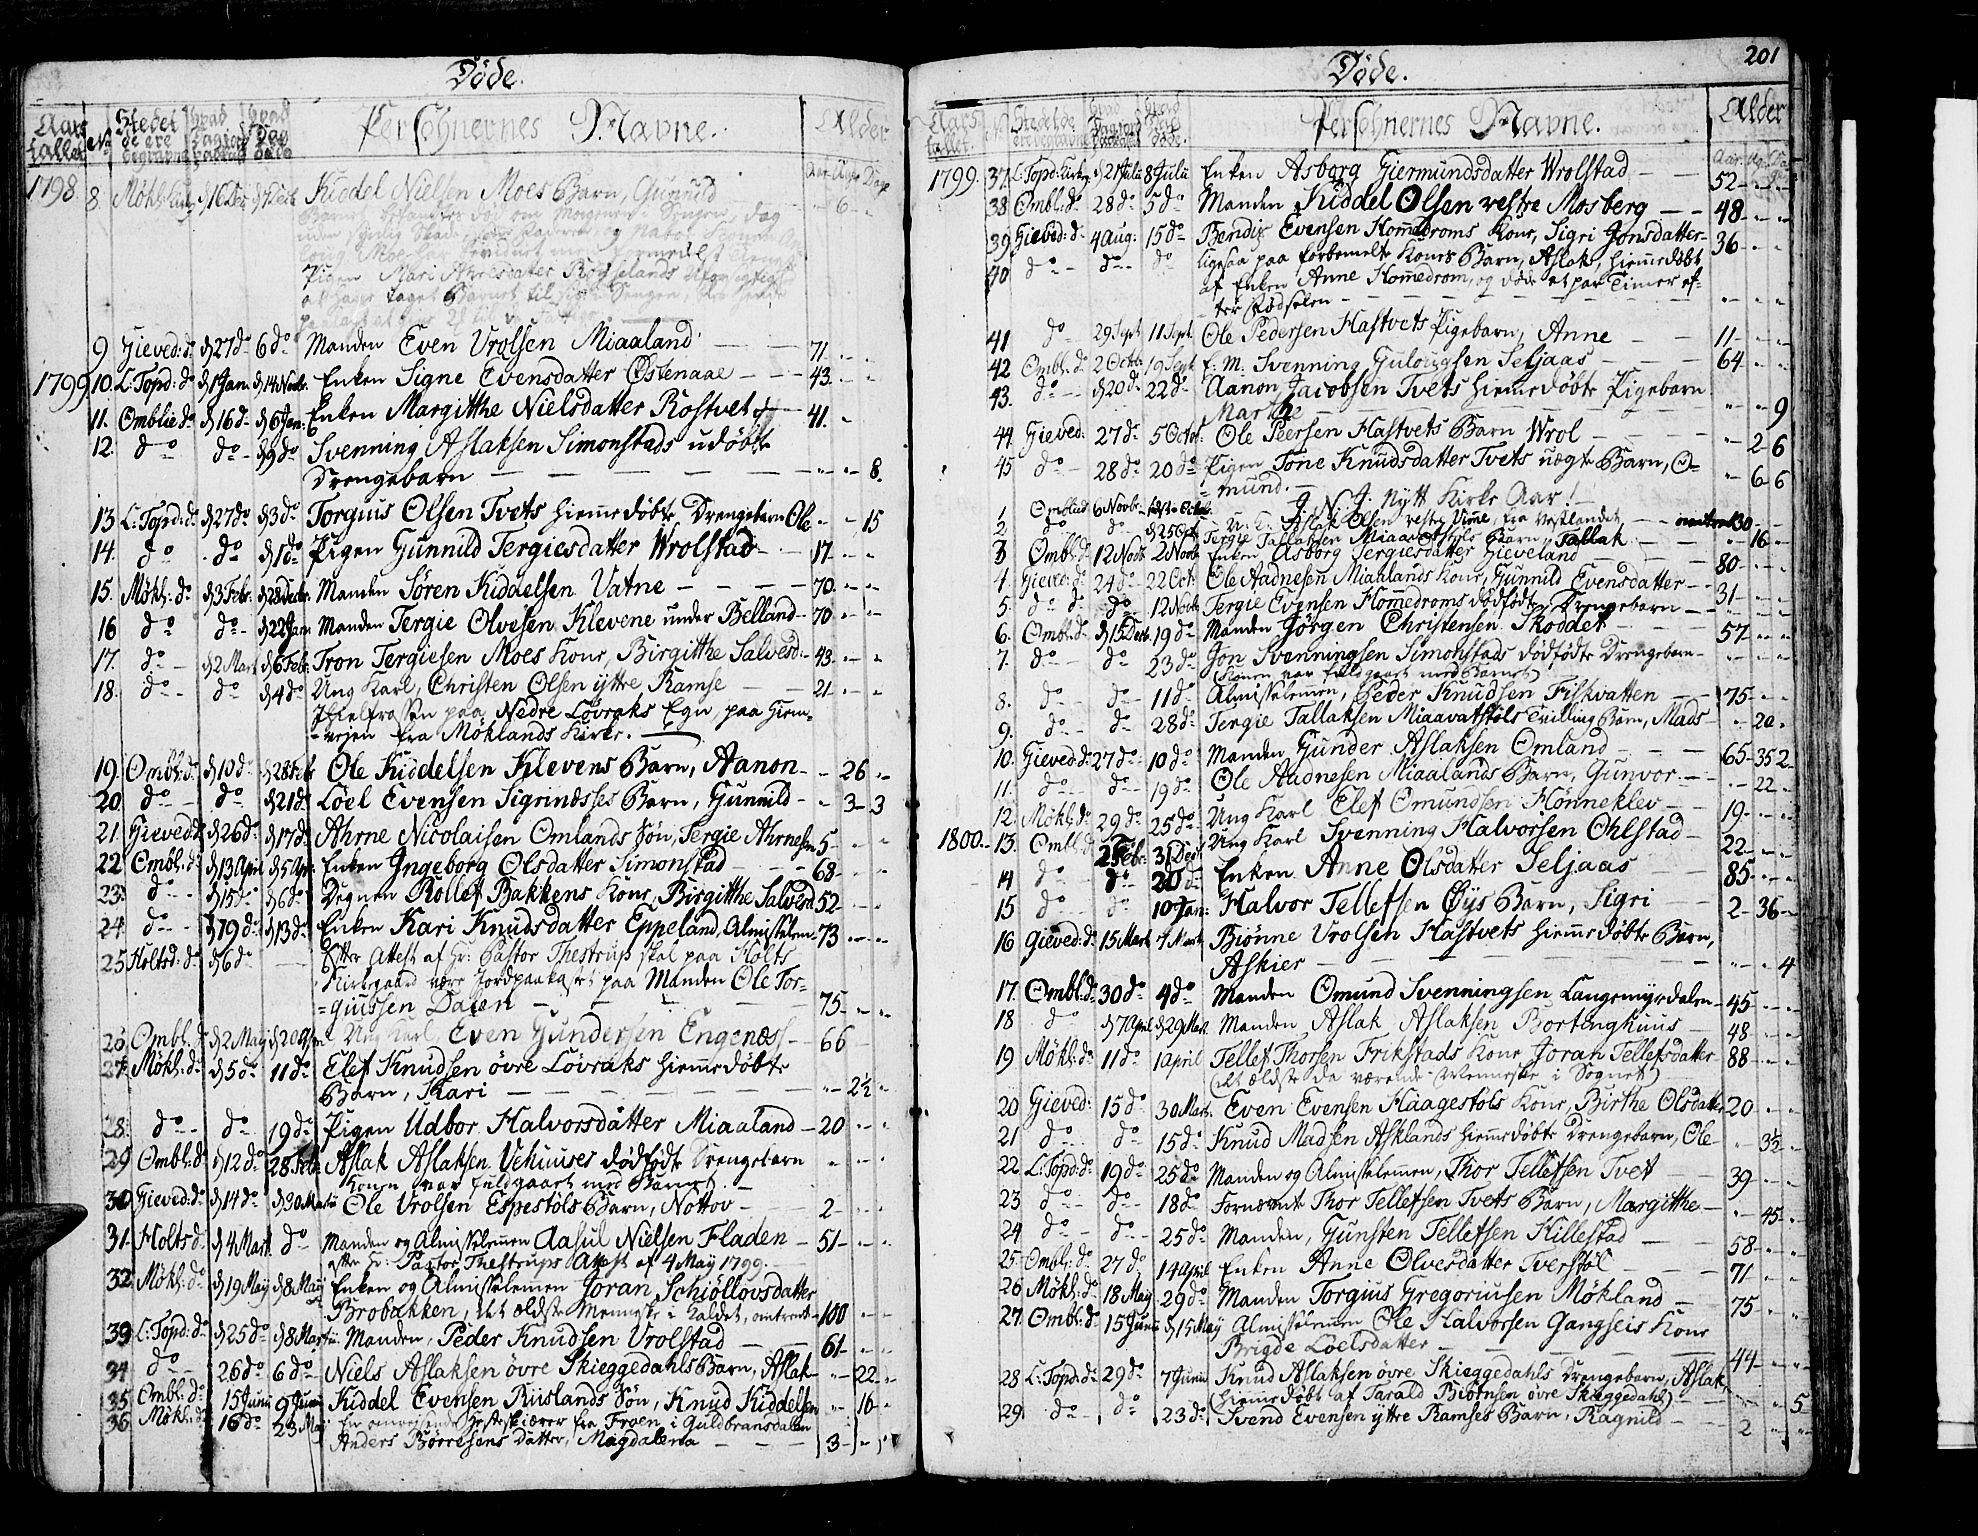 Døde.
Aars tallet No Stedet de ere begravne Persohnernes Navne. Alder
Aar Uge Dage
1798 8. Møkl: Kiddel Nielsen Moes Barn, Gunnild 6
Pigen Mari
taget Barnet til sig i Sengen,
9 Gieved: do 27 do 6 do Manden Even Vrolsen Miaaland 71
1799 10. L: Topd: do 1 Jan. 14 Novb. Enken Signe Evensdatter Østenaae 43
11. Omblie do 16 do 6 Jan: Enken Margitthe Nielsdatter Rostvet 41
12. do do 9 do Svenning Aslaksen Simonstads udøbte
Drengebarn 8
13 L: Topd: do 27 do 3 do Torgius Olsen Tvets hiemedøbte Drengebarn Ole 15
14. do do 1 do Pigen Gunnild Tergiesdatter Wrolstad 17
15. Møkl: do 3 Febr. 28 Decbr. Manden Søren Kiddelsen Vatne 70
16 do do 22 Jan Manden Tergie Olvesen Klevene under Belland 70
17. do 2 Mart 6 Feb: Tron Tergiesen Moes Kone, Birgitthe Salvesd: 43
18. do do 4 do Ung Karl, Christen Olsen yttre Ramse 21
Ihielfrossen paa Nedre Løvraks Egn paa Hiem-
veien fra Møklands Kirke.
19. Ombl: do 10 do 28 Feb Ole Kiddelsen Klevens Barn, Aanon 26
20 do do 21 do Løel Evensen Sigrinæsses Barn, Gunnild 3 3
21 Gieved: do 26 do 17 do Ahrne Nicolaisen Omlands Søn, Tergie Ahrnesen 5
22 Ombl: do 13 April 5 Apr: Enken Ingeborg Olsdatter Simonstad 68
23 do 15 do 6 do Degnen Rollef Bakkens Kone, Birgitthe Salvesd 52
24 do 19 do 13 do Enken Kari Knudsdatter Eppeland, Almisselem 73
25 Holtsd: do 6 do Efter Attest af Hr: Pastor Thestrup skal paa Holts
Kirkegaard være Jordpaakastet paa Manden Ole Tor-
=giussen Dalen 75
26 Ombl: do 2 May 20 Apr Ung Karl Even Gundersen Engenæss 66
27. Møkl: do 5 do 11 do Elef Knudsen øvre Løvraks hiemedøbte
Barn, Kari 2½
28. do do 19 do Pigen Udbor Halvorsdatter Miaaland 20
29 Ombl: do 12 do 28 Feb Aslak Aslaksen Vehuuses dødfødte Drengebarn
Konen var fuldgaaet med Barnet.
30 Gieved: do 14 do 30 Marti Ole Vrolsen Espestøls Barn, Nottov 2
31 Holts d. 4 Mart do Manden og Almisselemen Aasul Nielsen Fladen 51
efter Hr: Pastor Thestrups Attest af 4 May 1799.
32 Møkl: do 19 May 8 May Enken og Almisselemen Joran Schiøllovsdatter
Brobakken, det ældste Menniske i Kaldet, omtrent 100
33 L: Topd: do 25 do 8 Martii Manden, Peder Knudsen Vrolstad 61
34 do 26 do 6 do Niels Aslaksen øvre Skieggedahls Barn, Aslak 22
35 Ombl: do 15 Junii 9 Junii Kiddel Evensen Riislands Søn, Knud Kiddelsen 16
36 Møkl: do 16 do 23 May En omreisende Hesteskiærer fra Froen i Guldbransdalen
Anders Børresens Datter, Magdalena 3
201
Døde.
Aars tallet No Stedet de ere begravne Persohnernes Navne. Alder
1799. 37. L: Topd: Kirke 21 Julii 8 Julii Enken Asborg Giermundsdatter Wrolstad 52
38 Ombl: do 28 do 5 do Manden Kiddel Olsen vestre Mosberg 48
39 Gieved: do 4 Aug: 15 do Bendix Evensen Homedroms Kone, Sigri Jonsdatter 36
40 do do do ligesaa paa forbemelte Kones Barn, Aslak, hiemedøbt
af Enken Anne Homedrom, og døde et par Timer ef-
=ter Fødselen
41 do 29 Sept 11 Sept. Ole Pedersen Hastvets Pigebarn, Anne 11
42 Ombl: do 2 Octob 19 Sept f. M. Svenning Gulougsen Seljaas 64
43. do 20 do 22 do Aanon Jacobsen Tvets hiemedøbte Pigebarn
Marthe 9
44 Gieved: 27 do 5 Octob: Ole Peersen Hastvets Barn Wrol 2 6
45 do 28 do 20 do Pigen Tone Knudsdatter Tvets uægte Barn, O-
=mund. 6 6
J. N. J: Nytt Kirke Aar!
1 Omblie d 6 Novbr U. K: Aslak Olsen vestre Vime, fra Vestlandet omtrent 30
2. do do 25 Oct Tergie Tallaksen Miaavatstøls Barn, Tallak 16
3 Ombl: do 12 Novb 2 Novb Enken Asborg Tergiesdatter Gieveland 80
4. Gieve: do 24 do 22 Oct: Ole Aadnesen Miaalands Kone, Gunnild Evensdatter 31
5. do do do 12 Novb Tergie Evensen Homedroms dødfødte Drengebarn
6. Ombl: do 15 Decb. 19 do Manden Jørgen Christensen Skoddet 57
7. do do 23 do Jon Svenningsen Simonstads dødfødte Drengebarn
(Konen var fuldgaaet med Barnet)
8. do do 11 do Almisselemen, Peder Knudsen Fiskvatten 75
9. do do 28 do Tergie Tallaksen Miaavatstøls Tvilling Barn, Mads 20
10. Gieved: do 27 do 10 do Manden Gunder Aslaksen Omland 65 35 2
11. do do 19 do Ole Aadnesen Miaalands Barn, Gunvor 22
12. Møkl: do 29 do 25 do Ung Karl Elef Omundsen Hønneklev 19
1800. 13. Ombl: do 2 Febr: 31 Decb Ung Karl Svenning Halvorsen Ohlstad 22
14 do do 20 do Enken Anne Olsdatter Seljaas 85
15 do do 10 Jan: Halvor Tellefsen Øys Barn, Sigri 2 36
16 Gieved: do 15 Mart 7 Mart Biønne Vrolsen Hastvets hiemedøbte Barn,
Askier 4
17. Ombl: do 30 do 4 do Manden Omund Svenningsen Langemyrdalen 45
18 do 7 April 29 Mart. Manden Aslak Aslaksen Bortinghuus 48
19 Møkl: do 11 do 1 April Tellef Thorsen Frikstads Kone Joran Tellefsdatter 88
(det ældste da værende Menneske i Sognet)
20 Gieved: 15 do 30 Mart. Even Evensen Haagestøls Kone, Birthe Olsdatter 20
21 do do 15 do Knud Madsen Asklands hiemedøbte Drengebarn, Ole 3½
22 L: Topd: do 19 do 25 do Manden og Almisselemen, Thor Tellefsen Tvet 39
23 do do 18 do Fornævnte Thor Tellefsen Tvets Barn, Margitthe 45
24 do do 25 do Manden, Gunsten Tellefsen Hillestad 58
25 Ombl: do 27 do 14 April Enken Anne Olvesdatter Tverstøl 71
26 Møkl: do 18 May 29 do Manden Torgius Gregoriusen Møkland 75
27. Ombl: do 15 Junii 15 May Almisselemen Ole Halvorsen Gangseis Kone
Brigde Loelsdatter 44
28 L: Topd: do 29 do 7 Junii Knud Aslaksen øvre Skieggedahls Drengebarn, Aslak
(hiemedøbt af Tarald Biørnsen øvre Skieggedahl) 5
29. do do 23 do Svend Evensen yttre Ramses Barn, Ragnild 2